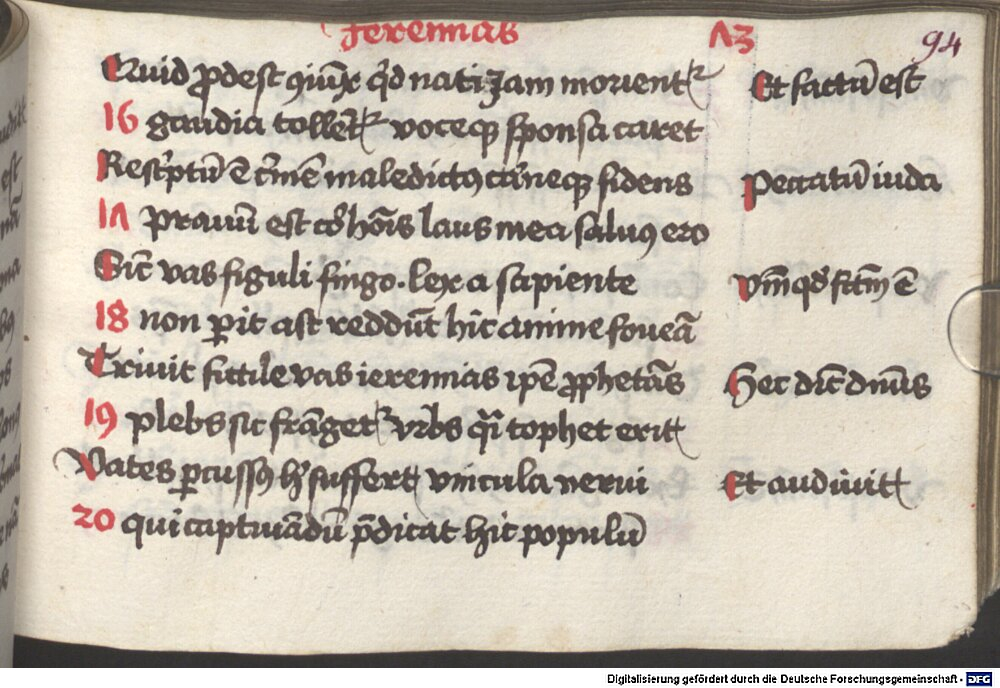 Jeremias 13 94
Quid ꝓdest ꝯiūx qͥd nati Jam morientꝛ Et factū est
16 gaudia tollētꝛ voceqꝫ sponsa caret
Rescͥptū ē cͥmē maledictꝰ carneqꝫ fidens Peccatū iuda
17 prauū est cor hoīs laus mea saluus ero
Sic̄ vas figuli fingo. lex a sapiente vm̄ qd fctm̄ ē
18 non ꝑit ast reddūt hic anime foueā
Triuit fictile vas ieremias ipē ꝓphetās Hec dic̄ dn̄us
19 plebs sic frāgetꝛ vrbs qͣi tophet erit
Vates ꝑcussꝰ hͥ suffert vincula nerui Et audiuit
20 qui captiuādū p̄dicat hic populū
Digitalisierung gefördert durch die Deutsche Forschungsgemeinschaft - DFG